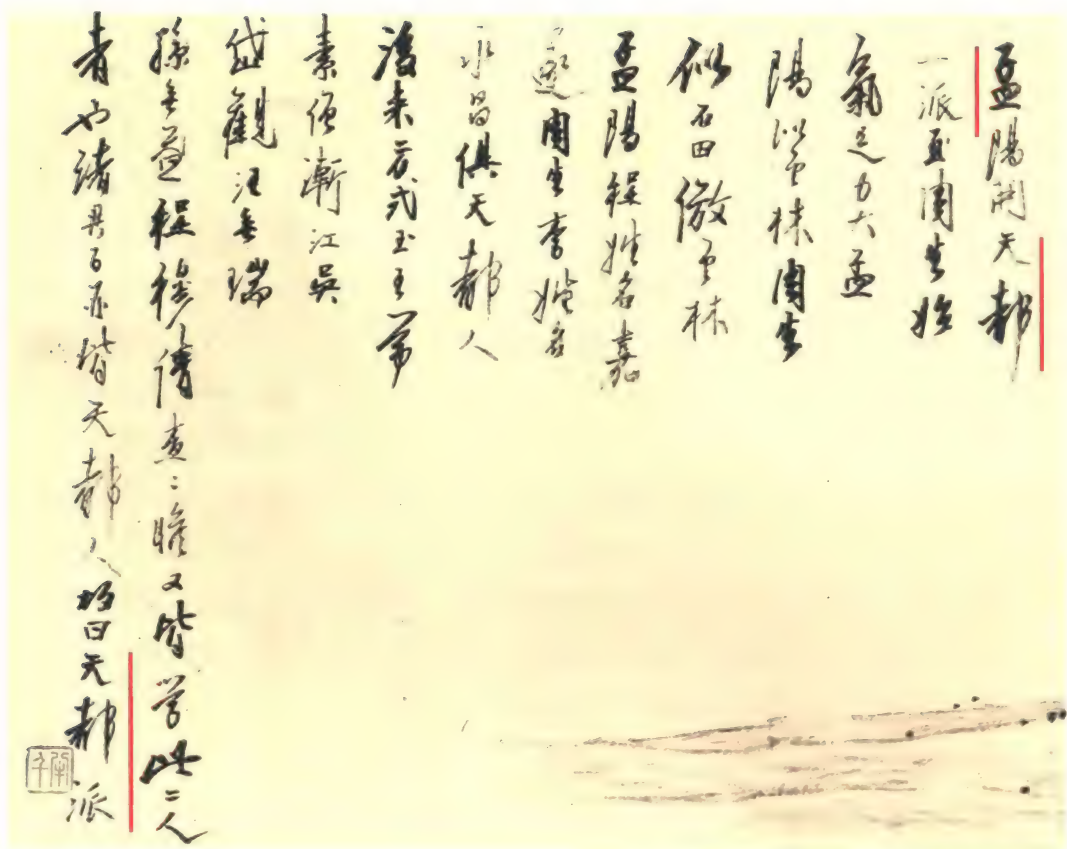 孟陽開天都
一派至周生始
氣足力大孟
陽似雲林周生
似石田倣雲林
孟陽程姓名嘉
燧周生李姓名
永昌俱天都人
後來方式玉王尊
素僧漸江吳
岱觀汪無瑞
孫無益程穆倩查二瞻又皆學此二人
者也諸君子亦皆天都人故曰天都派